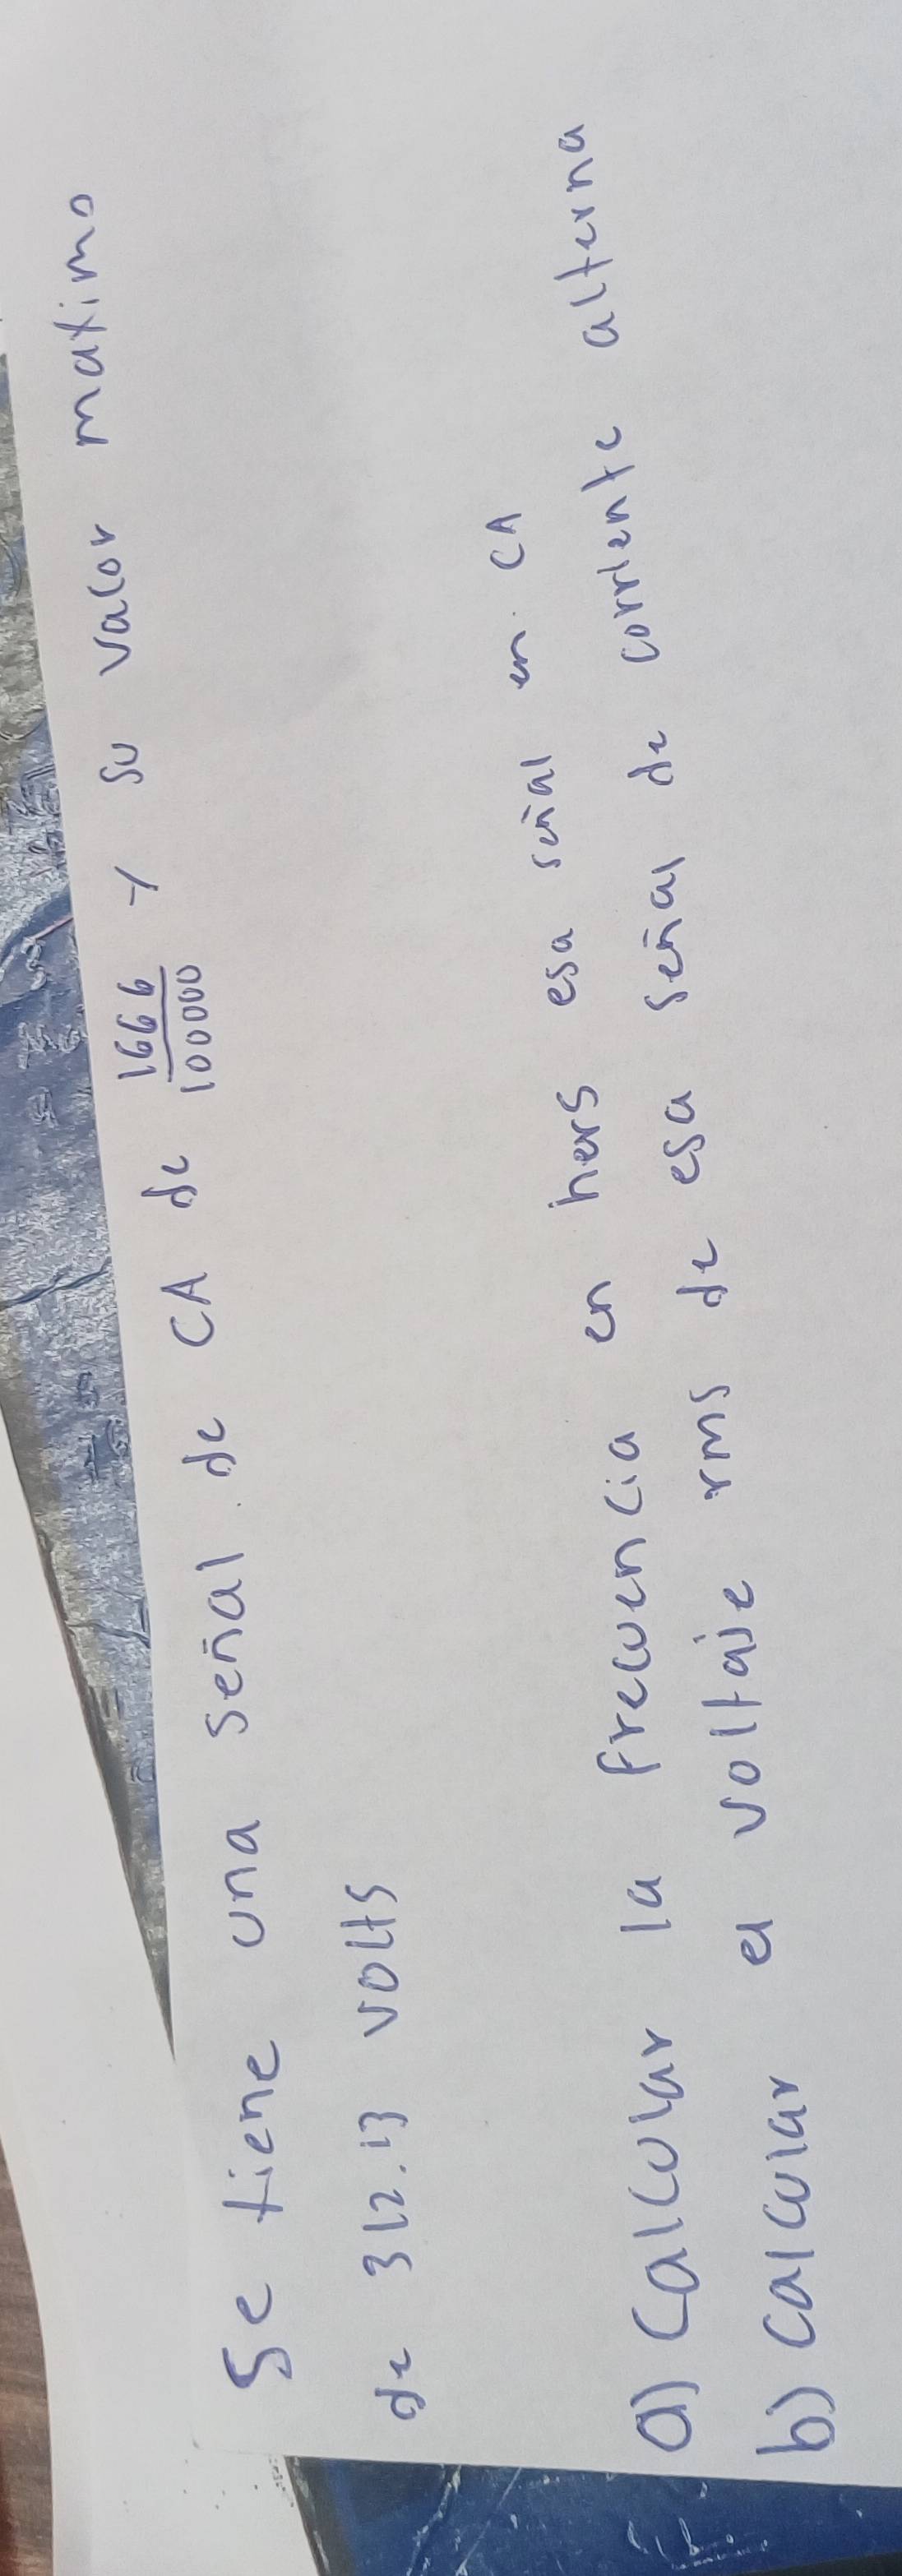 Se tiene una señal de CA de 1666/100000 y su valor maximo
de 312.13 volts
a) Calcular la frecuencia en hers esa señal en CA
b) Calcular el voltaje rms de esa señal de corriente alterna